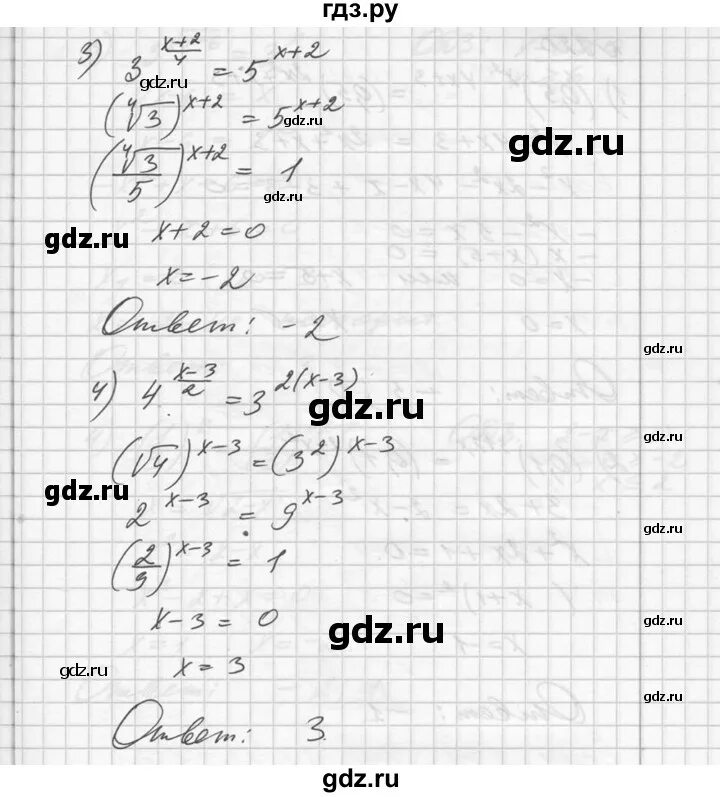 гдз.ру
3) 3^((x+2)/4) = 5^(x+2)
gdz.ru
(∜3)^(x+2) = 5^(x+2)
gdz.ru
gdz.ru
(∜3/5)^(x+2) = 1
gdz.ru
x+2=0
gdz.ru
x=-2
Ответ: -2
gdz.ru
4) 4^((x-3)/2) = 3^(2(x-3))
gdz.ru
(√4)^(x-3) = (3^2)^(x-3)
gdz.ru
gdz.ru
2^(x-3) = 9^(x-3)
gdz.ru
(2/9)^(x-3) = 1
x-3 = 0
gdz.ru
gdz.ru
x = 3
gdz.ru
gdz.ru
Ответ: 3
gdz.ru